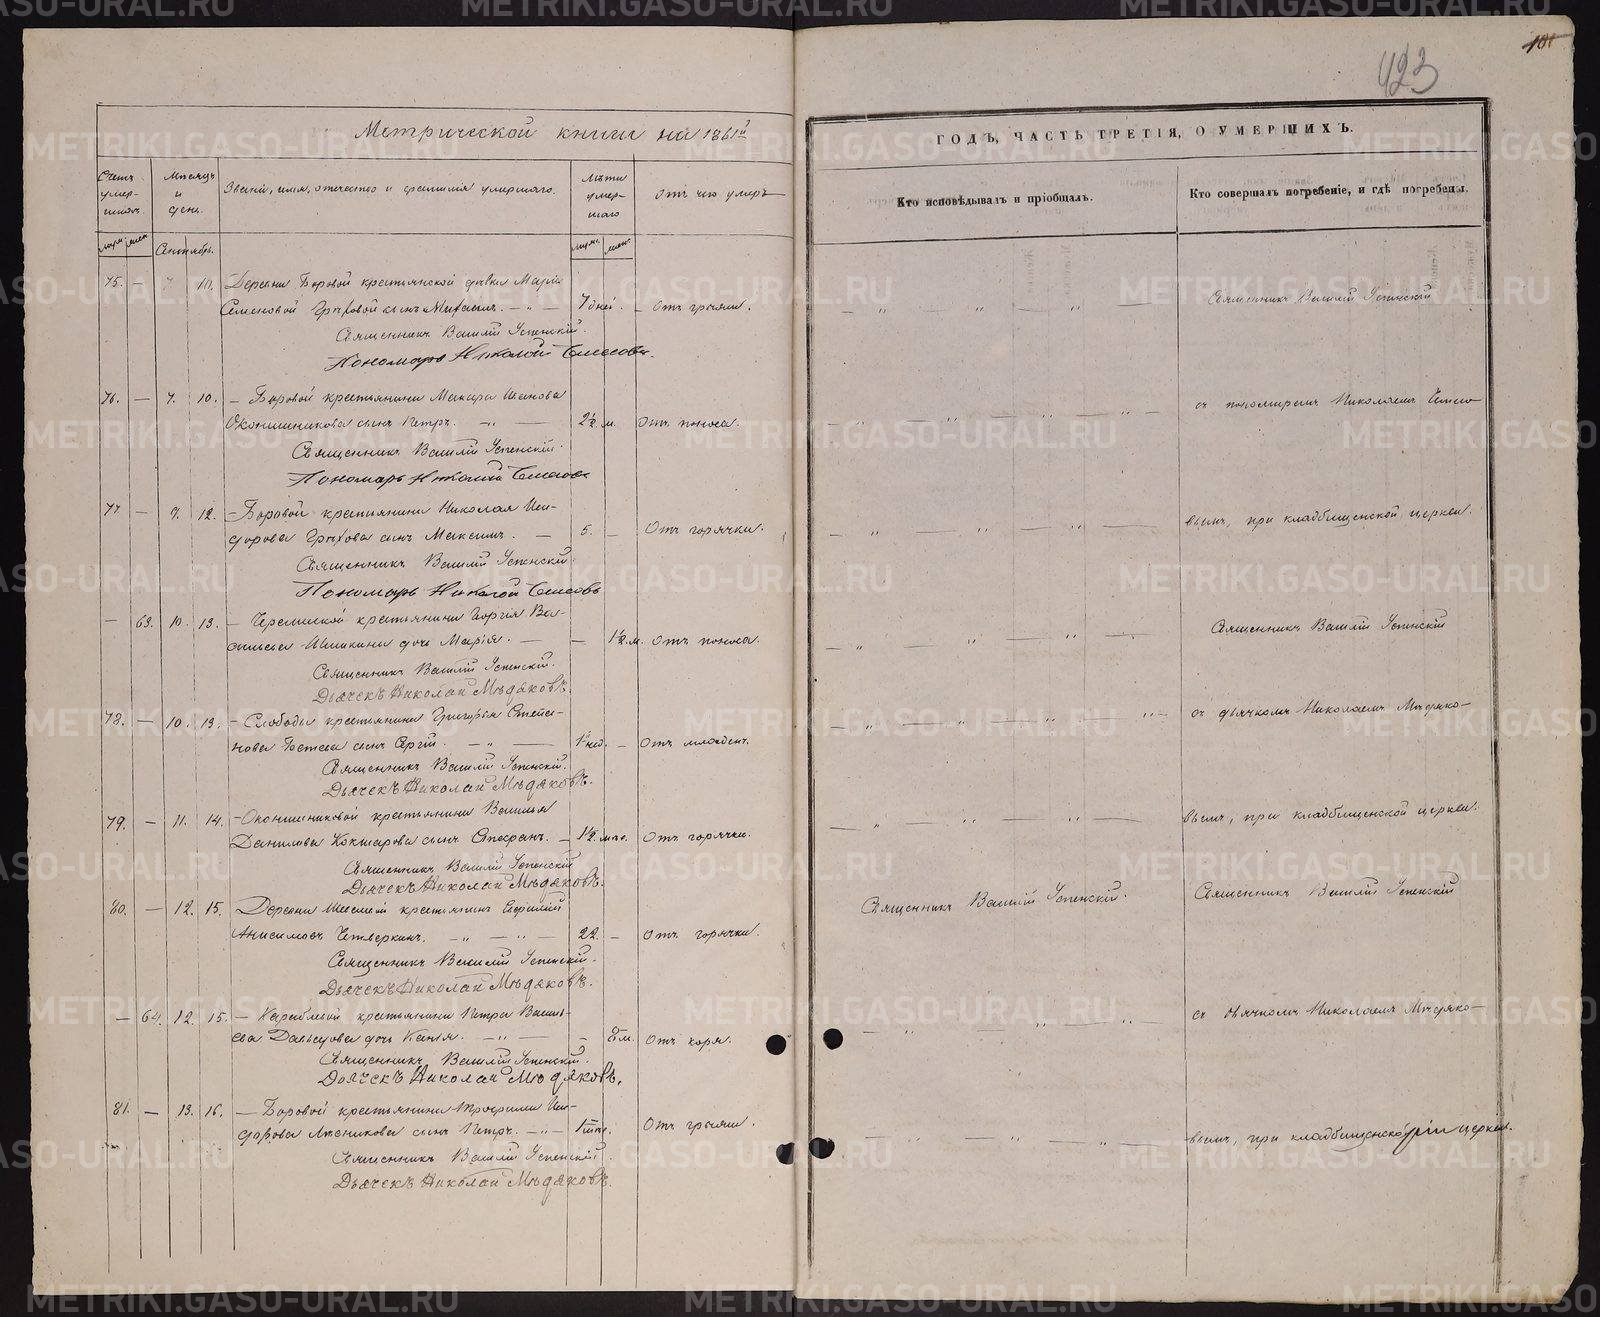 Метрической книги на 1861й
ГОДЪ, ЧАСТЬ ТРЕТІЯ, О УМЕРШИХЪ.
423
101
Счетъ умер-шихъ.
Мѣсяцъ и день.
Званіе, имя, отчество и фамилія умершаго.
Лѣта умер-шаго
Отъ чего умеръ
Кто исповѣдывалъ и пріобщалъ.
Кто совершалъ погребеніе, и гдѣ погребены.
Сентябрь.
75. — 7. 10. Деревни Боровой крестьянской дѣвки Маріи
Семеновой Грѣховой сынъ 7 дней. — Отъ грыжи.
Священникъ Василій Успенскій
Священникъ Василій Успенскій.
Пономарь Николай
76. — 7. 10. — Боровой крестьянина Макара Иванова
Оконишникова сынъ Петръ. 2½ м. Отъ поноса.
съ пономаремъ Николаемъ
Священникъ Василій Успенскій.
Пономарь Николай
77 — 9. 12. — Боровой крестьянина Николая Иси-
дорова Грѣхова сынъ Максимъ. — 5. — Отъ горячки.
вымъ, при кладбищенской церкви.
Священникъ Василій Успенскій.
Пономарь Николай
— 63. 10. 13. — крестьянина Георгія Ва-
сильева Шишкина дочь Марія. — — 1½ м. Отъ поноса.
Священникъ Василій Успенскій
Священникъ Василій Успенскій.
Дьячекъ Николай Мѣдяковъ.
78. — 10. 13. — Слободы крестьянина Григорья Степа-
нова сынъ Сергій. 1 нед. — Отъ младенч.
съ дьячкомъ Николаемъ Мѣдяко-
Священникъ Василій Успенскій.
Дьячекъ Николай Мѣдяковъ.
79. — 11. 14. — Оконишниковой крестьянина Василья
Данилова Кокшарова сынъ Стефанъ. — 1½ Отъ горячки.
вымъ, при кладбищенской церкви.
Священникъ Василій Успенскій
Дьячекъ Николай Мѣдяковъ.
80. — 12. 15. Деревни крестьянинъ Евфимій
Анисимовъ Четверкинъ. 22. — Отъ горячки.
Священникъ Василій Успенскій.
Священникъ Василій Успенскій
Священникъ Василій Успенскій.
Дьячекъ Николай Мѣдяковъ.
— 64. 12. 15. — крестьянина Петра Василь-
ева дочь — 8 м. Отъ кори.
съ дьячкомъ Николаемъ Мѣдяко-
Священникъ Василій Успенскій.
Дьячекъ Николай Мѣдяковъ.
81. — 13. 16. — Боровой крестьянина Трофима Иси-
дорова сынъ Петръ. Отъ грыжи.
вымъ, при кладбищенской церкви.
Священникъ Василій Успенскій.
Дьячекъ Николай Мѣдяковъ.
METRIKI.GASO-URAL.RU